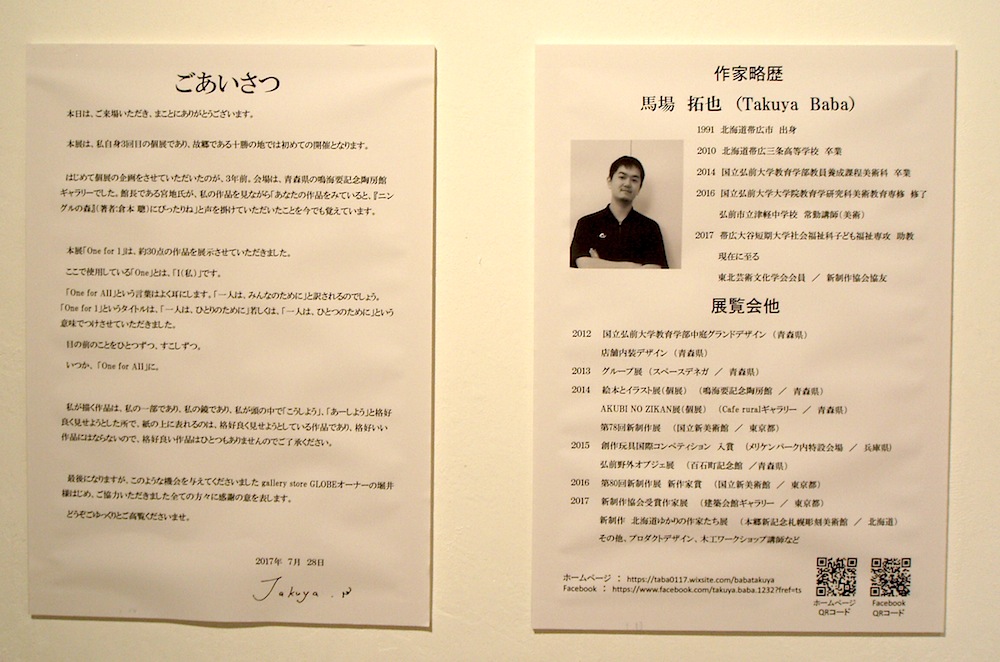 ごあいさつ
本日は、ご来場いただき、まことにありがとうございます。
本展は、私自身3回目の個展であり、故郷である十勝の地では初めての開催となります。
はじめて個展の企画をさせていただいたのが、3年前。会場は、青森県の鳴海要記念陶房館
ギャラリーでした。館長である宮地氏が、私の作品を見ながら「あなたの作品をみていると、『ニン
グルの森』(著者:倉本 聰)にぴったりね」と声を掛けていただいたことを今でも覚えています。
本展「One for 1」は、約30点の作品を展示させていただきました。
ここで使用している「One」とは、「I(私)」です。
「One for All」という言葉はよく耳にします。「一人は、みんなのために」と訳されるのでしょう。
「One for 1」というタイトルは、「一人は、ひとりのために」若しくは、「一人は、ひとつのために」という
意味でつけさせていただきました。
目の前のことをひとつずつ、すこしずつ。
いつか、「One for All」に。
私が描く作品は、私の一部であり、私の鏡であり、私が頭の中で「こうしよう」、「あーしよう」と格好
良く見せようとした所で、紙の上に表れるのは、格好良く見せようとしている作品であり、格好いい
作品にはならないので、格好良い作品はひとつもありませんのでご了承ください。
最後になりますが、このような機会を与えてくださいました gallery store GLOBEオーナーの堀井
様はじめ、ご協力いただきました全ての方々に感謝の意を表します。
どうぞごゆっくりとご高覧くださいませ。
2017年 7月 28日
Takuya .
作家略歴
馬場 拓也 (Takuya Baba)
1991 北海道帯広市 出身
2010 北海道帯広三条高等学校 卒業
2014 国立弘前大学教育学部教員養成課程美術科 卒業
2016 国立弘前大学大学院教育学研究科美術教育専修 修了
弘前市立津軽中学校 常勤講師(美術)
2017 帯広大谷短期大学社会福祉科子ども福祉専攻 助教
現在に至る
東北芸術文化学会会員 / 新制作協会協友
展覧会他
2012 国立弘前大学教育学部中庭グランドデザイン (青森県)
店舗内装デザイン (青森県)
2013 グループ展 (スペースデネガ / 青森県)
2014 絵本とイラスト展(個展) (鳴海要記念陶房館 / 青森県)
AKUBI NO ZIKAN展(個展) (Cafe ruralギャラリー / 青森県)
第78回新制作展 (国立新美術館 / 東京都)
2015 創作玩具国際コンペティション 入賞 (メリケンパーク内特設会場 / 兵庫県)
弘前野外オブジェ展 (百石町記念館 /青森県)
2016 第80回新制作展 新作家賞 (国立新美術館 / 東京都)
2017 新制作協会受賞作家展 (建築会館ギャラリー / 東京都)
新制作 北海道ゆかりの作家たち展 (本郷新記念札幌彫刻美術館 / 北海道)
その他、プロダクトデザイン、木工ワークショップ講師など
ホームページ : https://taba0117.wixsite.com/babatakuya
Facebook : https://www.facebook.com/takuya.baba.1232?fref=ts
ホームページ
QRコード
Facebook
QRコード